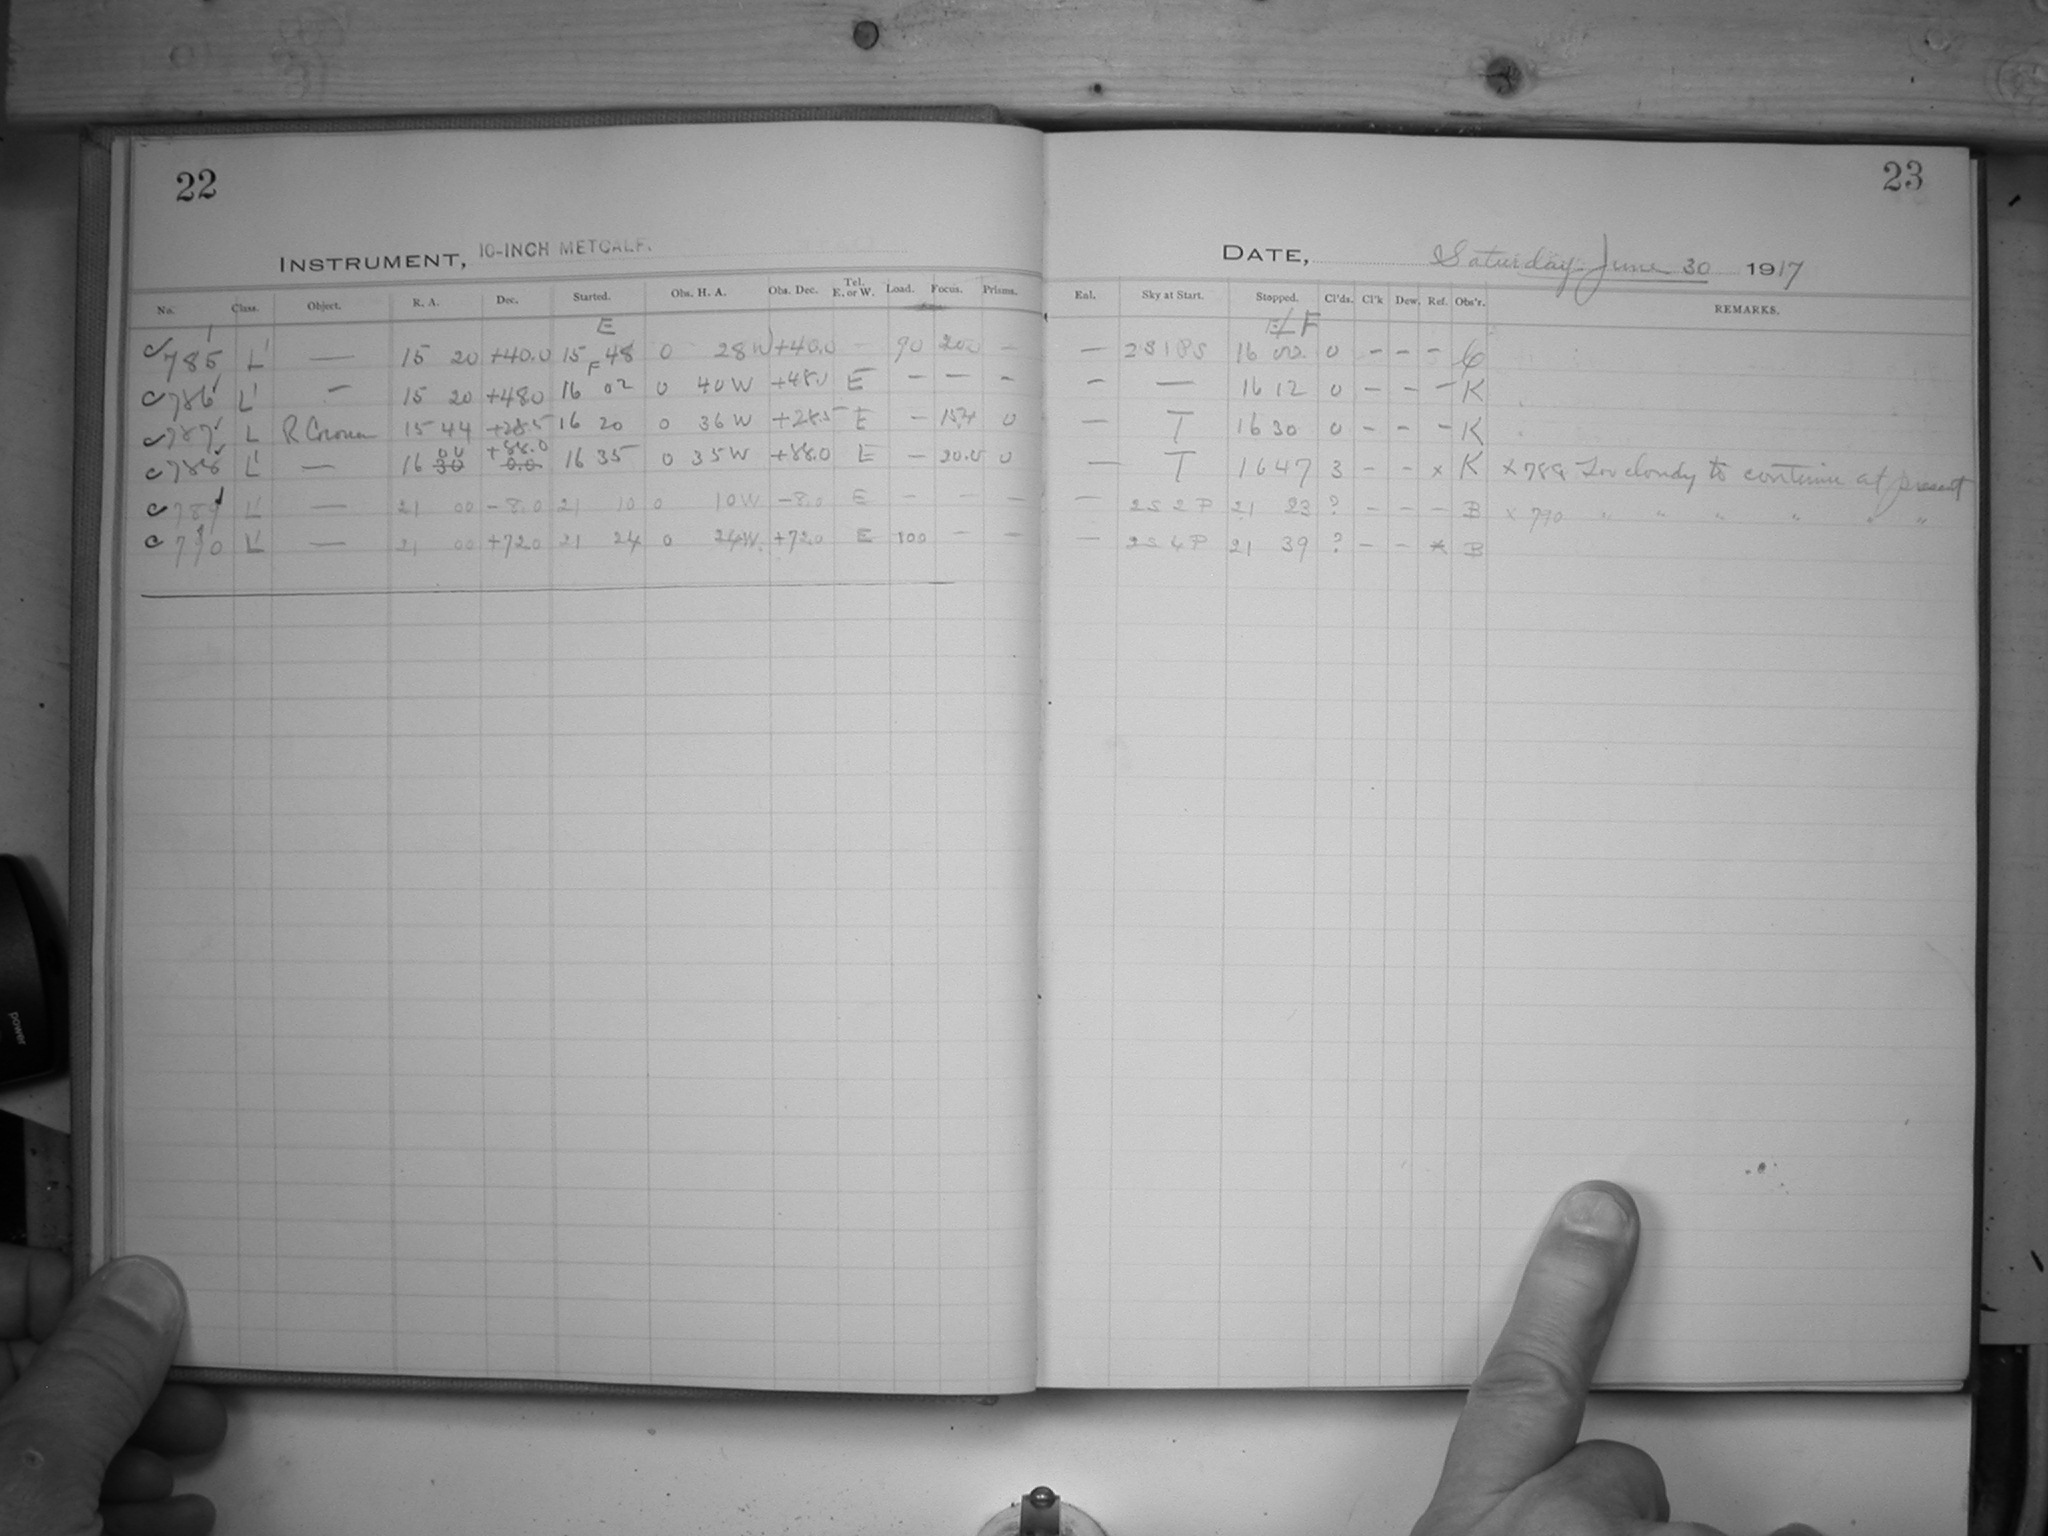 22
INSTRUMENT, 10-INCH METCALF.
No. Class. Object. R. A. Dec. Started. Obs. H. A. Obs. Dec. Tel. E. or W. Load. Focus. Prisms.
E
785 L' — 15 20 +40.0 15 48 0 28 W +40.0 — 90 20.0 —
F
786 L' — 15 20 +48.0 16 02 0 40 W +48.0 E — — —
787 L R Coronae 15 44 +28.5 16 20 0 36 W +28.5 E — 15.4 0
00 +88.0
788 L' — 16 30 0.0 16 35 0 35 W +88.0 E — 20.0 0
789 L' — 21 00 -8.0 21 10 0 10 W -8.0 E — — —
790 L' — 21 00 +72.0 21 24 0 24 W. +72.0 E 100 — —
23
DATE, Saturday June 30 1917
Eal. Sky at Start. Stopped. Cl'ds. Cl'k Dew. Ref. Obs'r. REMARKS.
E/F
— 2S1PS 16 02 0 - - -
— — 16 12 0 - - - K
— T 16 30 0 - - - K
— T 16 47 3 - - x K x 788 Too cloudy to continue at present
— 2S 2P 21 23 ? - - - B x 790 " " " " " "
— 2S 4P 21 39 ? - - x B
power